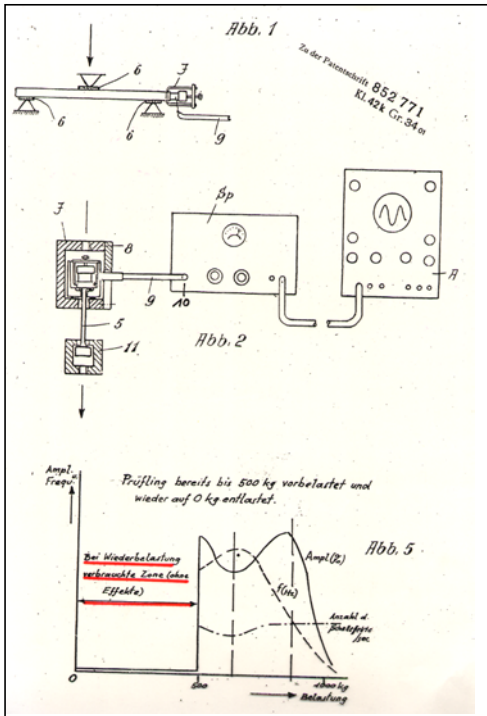 Abb. 1
Zu der Patentschrift 852 771
Kl. 42k Gr. 34 01
6
7
6
6
9
7
8
Sp
A
9
10
5
11
Abb. 2
Ampl.
Frequ.
Prüfling bereits bis 500 kg vorbelastet und
wieder auf 0 kg entlastet.
Abb. 5
Ampl(Z)
Bei Wiederbelastung
verbrauchte Zone (ohne
Effekte)
f(Hz)
Anzahl d.
/sec
0
500
1000 kg
Belastung